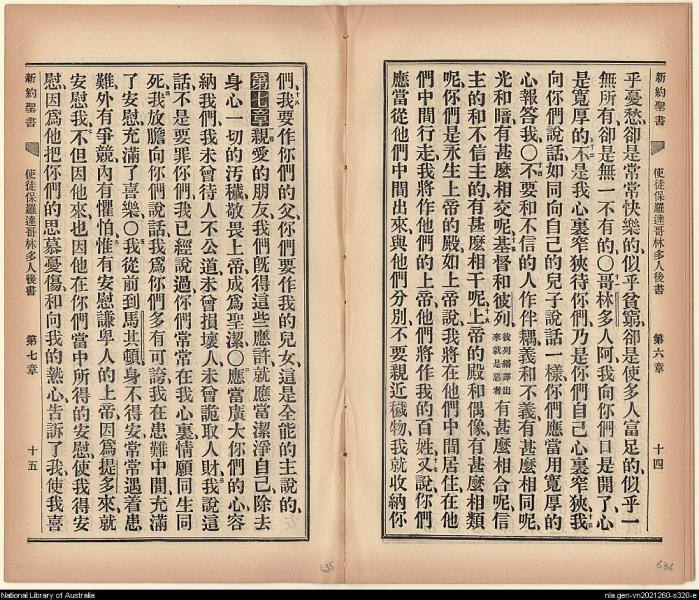 新約聖書
使徒保羅達哥林多人後書
第六章
十四
乎憂愁、卻是常常快樂的、似乎貧窮、卻是使多人富足的、似乎一
無所有、卻是無一不有的○哥林多人阿、我向你們口是開了、心
是寬厚的、十二不是我心裏窄狹待你們、乃是你們自己心裏窄狹、十三我
向你們說話、如同向自己的兒子說話一樣、你們應當用寬厚的
心報答我○十四不要和不信的人作伴耦、義和不義有甚麼相同呢、
光和暗有甚麼相交呢、十五基督和彼列彼列繙譯出來就是惡者有甚麼相合呢、信
主的和不信主的有甚麼相干呢、十六上帝的殿和偶像有甚麼相類
呢、你們是永生上帝的殿、如上帝說、我將在他們中間居住、在他
們中間行走、我將作他們的上帝、他們將作我的百姓、十七又說、你們
應當從他們中間出來、與他們分別、不要親近穢物、我就收納你
們、十八我要作你們的父、你們要作我的兒女、這是全能的主說的、
第七章親愛的朋友、我們旣得這些應許、就應當潔淨自己、除去
身心一切的汚穢、敬畏上帝、成爲聖潔○二應當廣大你們的心容
納我們、我未曾待人不公道、未曾損壞人、未曾詭取人財、三我說這
話、不是要罪你們、我已經說過、你們常常在我心裏、情願同生同
死、四我放膽向你們說話、我爲你們多有可誇、我在患難中間、充滿
了安慰、充滿了喜樂○五我從前到馬其頓、身不得安、常常遇着患
難、外有爭競、內有懼怕、六惟有安慰謙卑人的上帝、因爲提多來、就
安慰我、七不但因他來、也因他在你們當中所得的安慰、使我得安
慰、因爲他把你們的思慕憂傷和向我的熱心、告訴了我、使我喜
新約聖書
使徒保羅達哥林多人後書
第七章
十五
635
634
National Library of Australia
nla.gen-vn2021260-s320-e